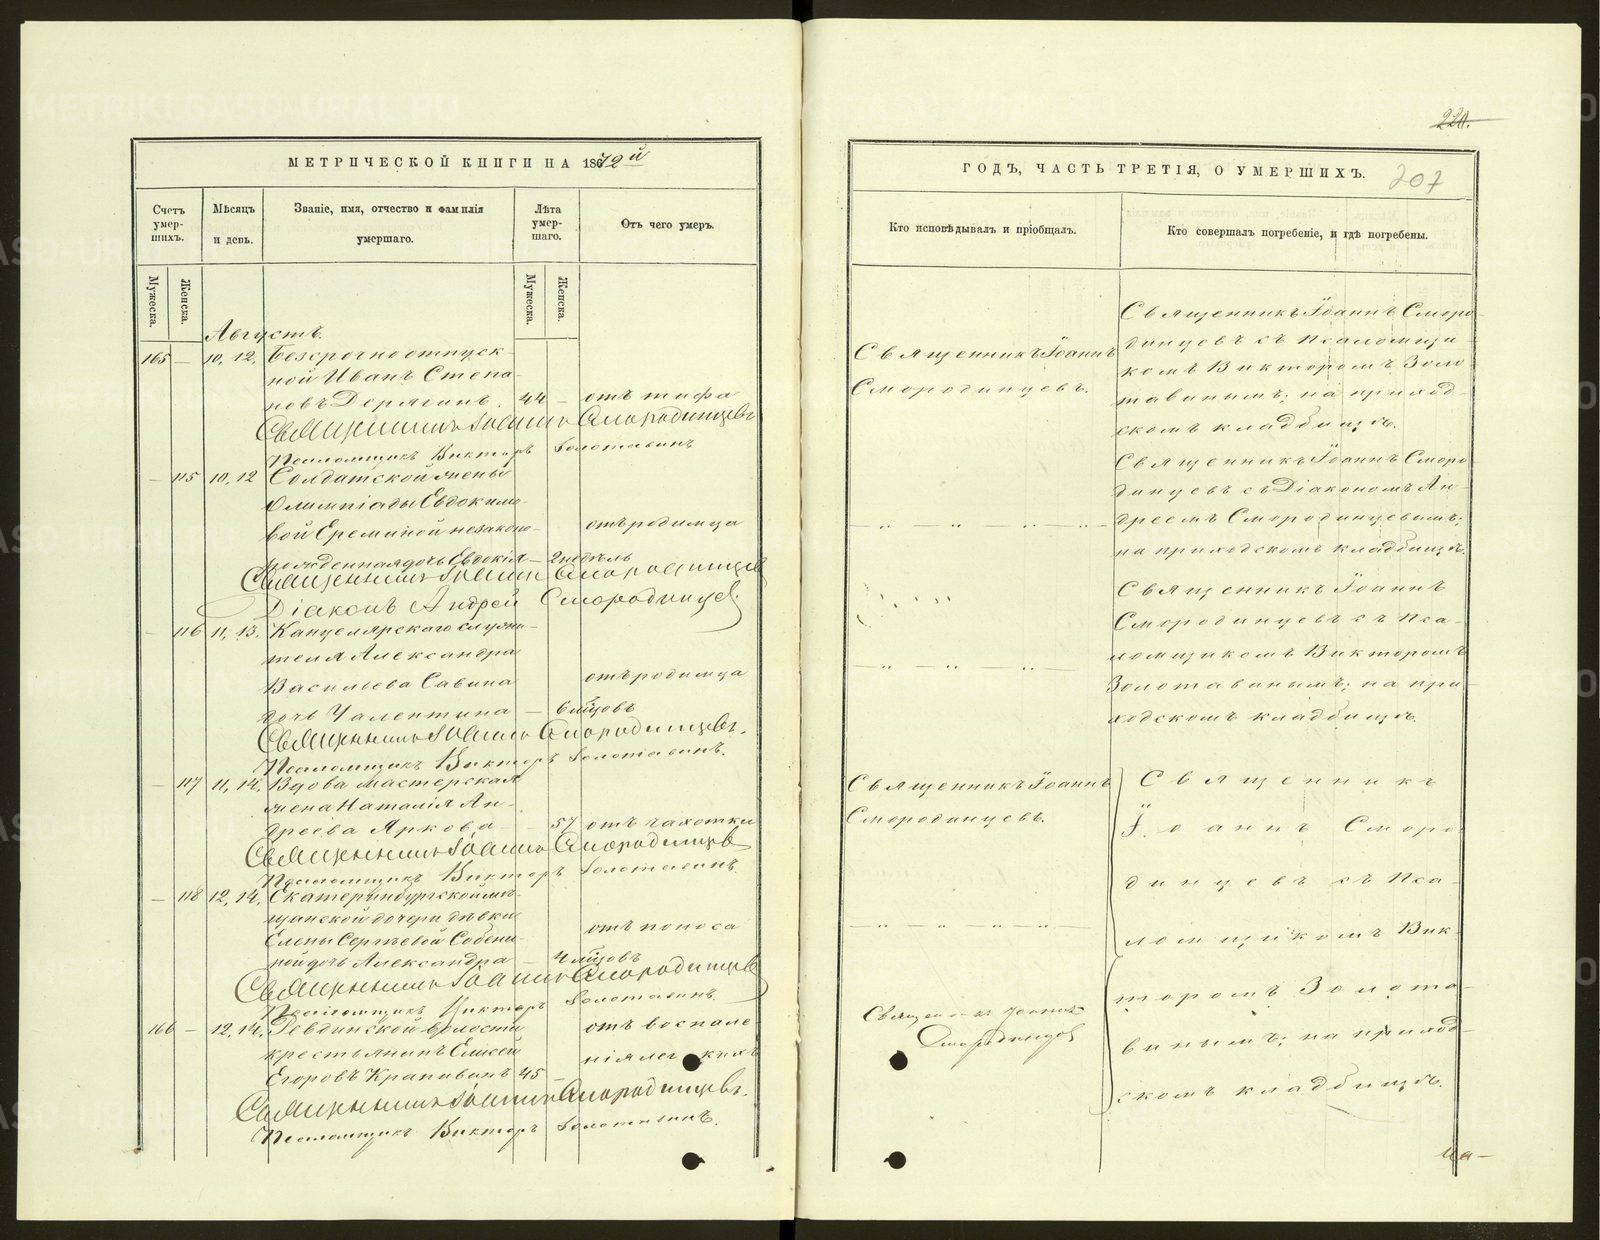 МЕТРИЧЕСКОЙ КНИГИ НА 1872й
Счетъ умер-шихъ.
Мѣсяцъ и день.
Званіе, имя, отчество и фамилія умершаго.
Лѣта умер-шаго.
Отъ чего умеръ.
Мужеска.
Женска.
Мужеска.
Женска.
Августъ.
165 — 10, 12. Безсрочноотпуск-
ной Иванъ Степа-
новъ Дерягинъ. 44 — отъ тифа
Священникъ Іоаннъ Смородинцевъ
Псаломщикъ Викторъ Золотавинъ
— 115 10, 12 Солдатской жены
Олимпіады Евдокимо-
вой Ереминой незакон-
но отъ родимца
рожденная дочь Евдокія — 2 недѣль
Священникъ Іоаннъ Смородинцевъ
Діаконъ Андрей Смородинцев
— 116 11, 13. Канцелярскаго служи-
теля Александра
Васильева Савина отъ родимца
дочь Валентина — 6 мѣсцовъ
Священникъ Іоаннъ Смородинцевъ.
Псаломщикъ Викторъ Золотавинъ.
— 117 11, 14. Вдова мастерская
жена Наталія Ан-
дреева Яркова — 57 отъ чахотки
Священникъ Іоаннъ Смородинцевъ
Псаломщикъ Викторъ Золотавинъ.
— 118 12, 14. Екатеринбургской мѣ-
щанской дочери дѣвки
Елены Сергѣевой Собени- отъ поноса
ной дочь Александра — 4 мѣсцовъ
Священникъ Іоаннъ Смородинцевъ
Псаломщикъ Викторъ Золотавинъ.
166 — 12, 14. Ревдинской волости отъ воспале
крестьянинъ Елисей нія легкихъ
Егоровъ Крапивинъ 45
Священникъ Іоаннъ Смородинцевъ.
Псаломщикъ Викторъ Золотавинъ.
220.
ГОДЪ, ЧАСТЬ ТРЕТІЯ, О УМЕРШИХЪ.
207
Кто исповѣдывалъ и пріобщалъ.
Кто совершалъ погребеніе, и гдѣ погребены.
Священникъ Іоаннъ
Смородинцевъ.
Священникъ Іоаннъ Сморо-
динцевъ съ псаломщи-
комъ Викторомъ Золо
тавинымъ; на приход-
скомъ кладбищѣ.
Священникъ Іоаннъ Сморо
динцевъ съ Діакономъ Ан-
дреемъ Смородинцевымъ;
на приходскомъ кладбищѣ.
Священникъ Іоаннъ
Смородинцевъ съ Пса-
ломщикомъ Викторомъ
Золотавинымъ; на при-
ходскомъ кладбищѣ.
Священникъ Іоаннъ
Смородинцевъ.
Священникъ Іоаннъ
Смородинцов
Священникъ
Іоаннъ Сморо
динцевъ съ Пса-
ломщикомъ Вик-
торомъ Золота-
винымъ; на приход-
скомъ кладбищѣ.
METRIKI.GASO-URAL.RU